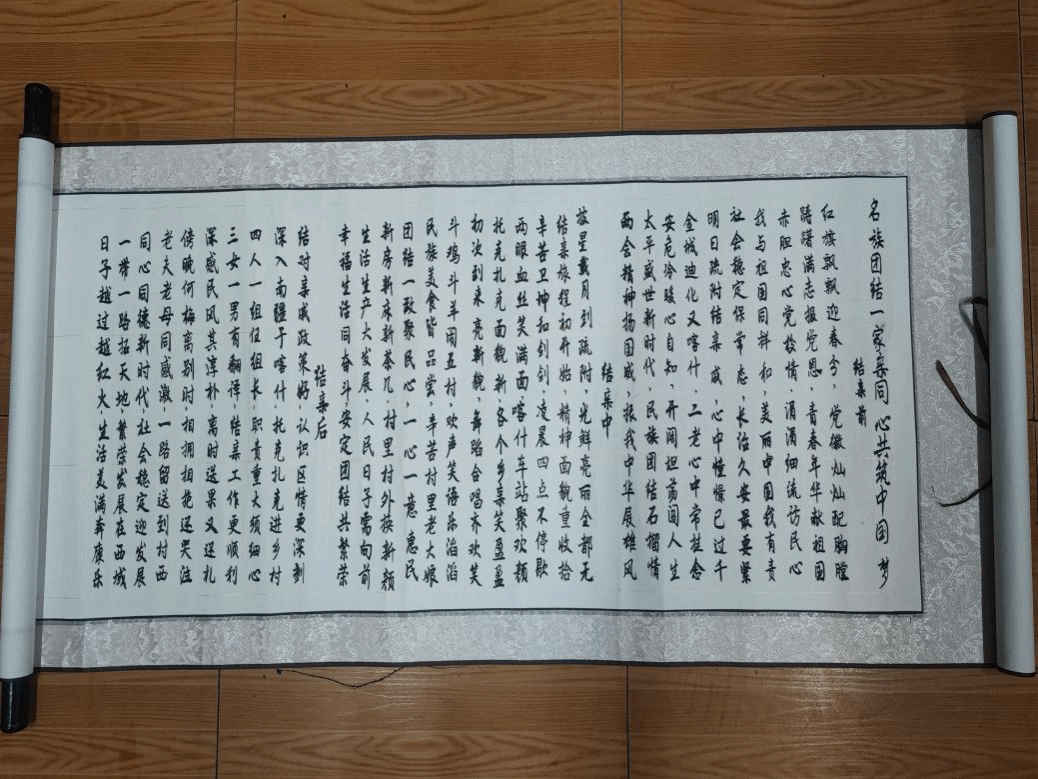 名族团结一家亲同心共筑中国梦
结亲前
红旗飘飘迎春今,党徽灿灿配胸膛
踌躇满志报党恩,青春年华献祖国
赤胆忠心党校情,涓涓细流访民心
我与祖国同祥和,美丽中国我有责
社会稳定保常态,长治久安最要紧
明日疏附结亲戚,心中憧憬已过千
金城迪化又喀什,二老心中常挂念
安危冷暖心自知,开阔坦荡闯人生
太平盛世新时代,民族团结石榴情
两会精神扬国威,报我中华展雄风
结亲中
披星戴月到疏附,光鲜亮丽全都无
结亲旅程初开始,精神面貌重收拾
辛苦卫坤和剑剑,凌晨四点不停歇
两眼血丝笑满面,喀什车站聚欢颜
托克扎克面貌新,各个乡亲笑盈盈
初次到来亮新貌,舞蹈合唱齐欢笑
斗鸡斗羊闹五村,欢声笑语乐滔滔
民族美食皆品尝,辛苦村里老大娘
团结一致聚民心,一心一意惠民
新房新床新茶几,村里村外换新颜
生活生产大发展,人民日子需向前
幸福生活同奋斗安定团结共繁荣
结亲后
结对亲戚政策好,认识区情更深刻
深入南疆于喀什,托克扎克进乡村
四人一组任组长,职责重大须细心
三女一男有翻译,结亲工作更顺利
深感民风其淳朴,离时送果又还礼
傍晚何梅离别时,相拥相抱还哭泣
老夫老母同感激,一路留送到村西
同心同德新时代,社会稳定迎发展
一带一路拓天地,繁荣发展在西域
日子越过越红火,生活美满奔康乐